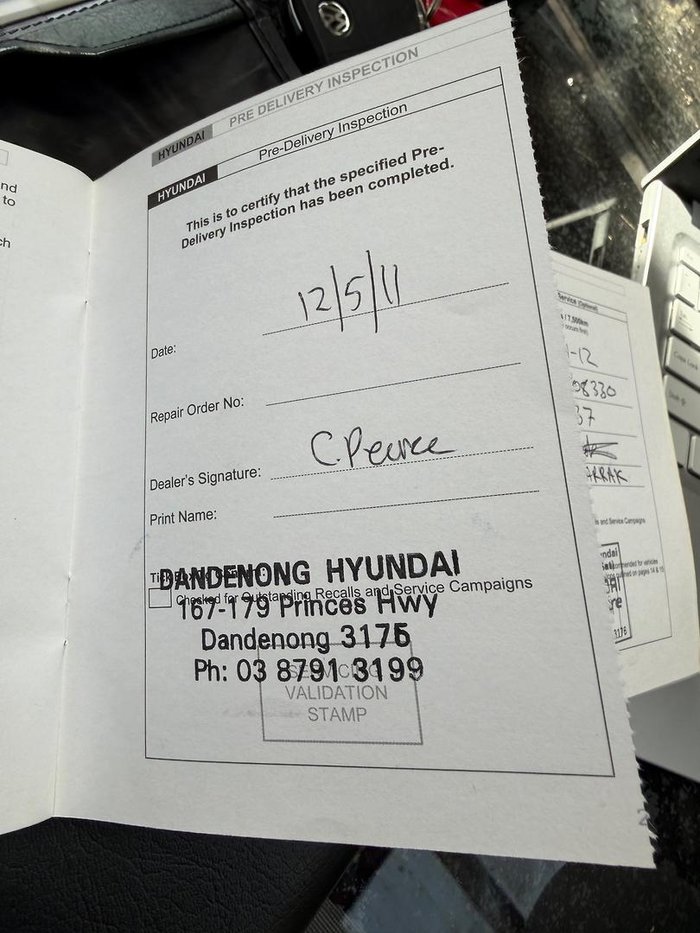 nd
to
ch
HYUNDAI PRE DELIVERY INSPECTION
HYUNDAI Pre-Delivery Inspection
This is to certify that the specified Pre-
Delivery Inspection has been completed.
Date: 12/5/11
Repair Order No:
Dealer's Signature: C. Pearce
Print Name:
DANDENONG HYUNDAI
Checked for Outstanding Recalls and Service Campaigns
167-179 Princes Hwy
Dandenong 3175
Ph: 03 8791 3199
SERVICING
VALIDATION
STAMP
Service (Optional)
7,500km
occurs first)
-12
08330
37
ARRAK
and Service Campaigns
3175
Caps Lock